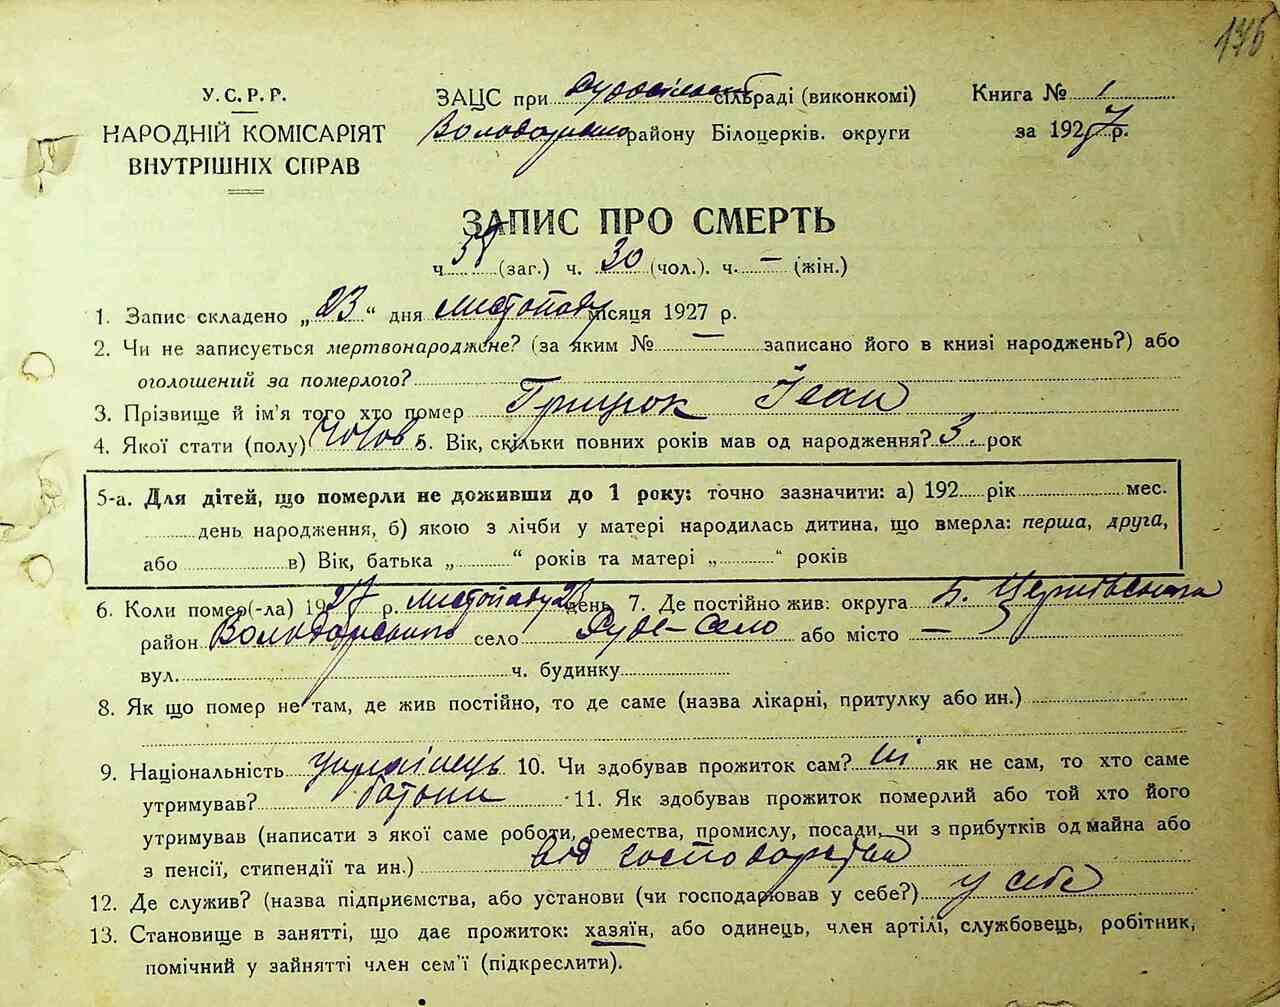 176
У.С.Р.Р.
НАРОДНІЙ КОМІСАРІЯТ
ВНУТРІШНІХ СПРАВ
ЗАЦС при Рудосільській сільраді (виконкомі)
Володарського району Білоцерків. округи
Книга № 1
за 1927 р.
ЗАПИС ПРО СМЕРТЬ
ч. 58 (заг.) ч. 30 (чол.). ч. — (жін.)
1. Запис складено „23“ дня листопаду місяця 1927 р.
2. Чи не записується мертвонароджене? (за яким № — записано його в книзі народжень?) або
оголошений за померлого?
3. Прізвище й ім'я того хто помер Грицюк Іван
4. Якої стати (полу) Чолов. 5. Вік, скільки повних років мав од народження? 3. рок
5-а. Для дітей, що померли не доживши до 1 року: точно зазначити: а) 192 рік мес.
день народження, б) якою з лічби у матері народилась дитина, що вмерла: перша, друга,
або в) Вік, батька „ “ років та матері „ “ років
6. Коли помер(-ла) 1927 р. листопаду 23 день 7. Де постійно жив: округа Б. Церківська
район Володарського село Руде-Село або місто —
вул. ч. будинку
8. Як що помер не там, де жив постійно, то де саме (назва лікарні, притулку або ин.)
9. Національність українець 10. Чи здобував прожиток сам? ні як не сам, то хто саме
утримував? батьки 11. Як здобував прожиток померлий або той хто його
утримував (написати з якої саме роботи, ремества, промислу, посади, чи з прибутків од майна або
з пенсії, стипендії та ин.) від господарства
12. Де служив? (назва підприємства, або установи (чи господарював у себе?) у себе
13. Становище в занятті, що дає прожиток: хазяїн, або одинець, член артілі, службовець, робітник,
помічний у зайнятті член сем'ї (підкреслити).